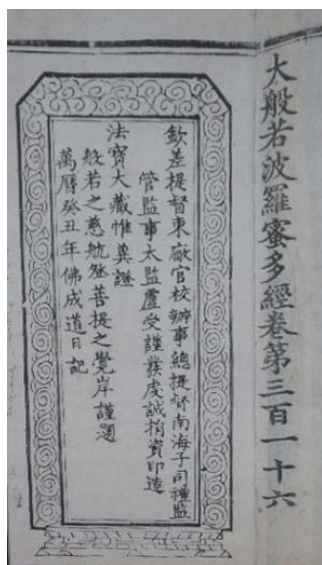 大般若波羅蜜多經卷第三百一十六
欽差提督東廠官校辦事總提督南海子司禮監
管監事太監盧受謹發虔誠捐資印造
法寶大藏惟冀證
般若之慈航登菩提之覺岸謹題
萬曆癸丑年佛成道日記